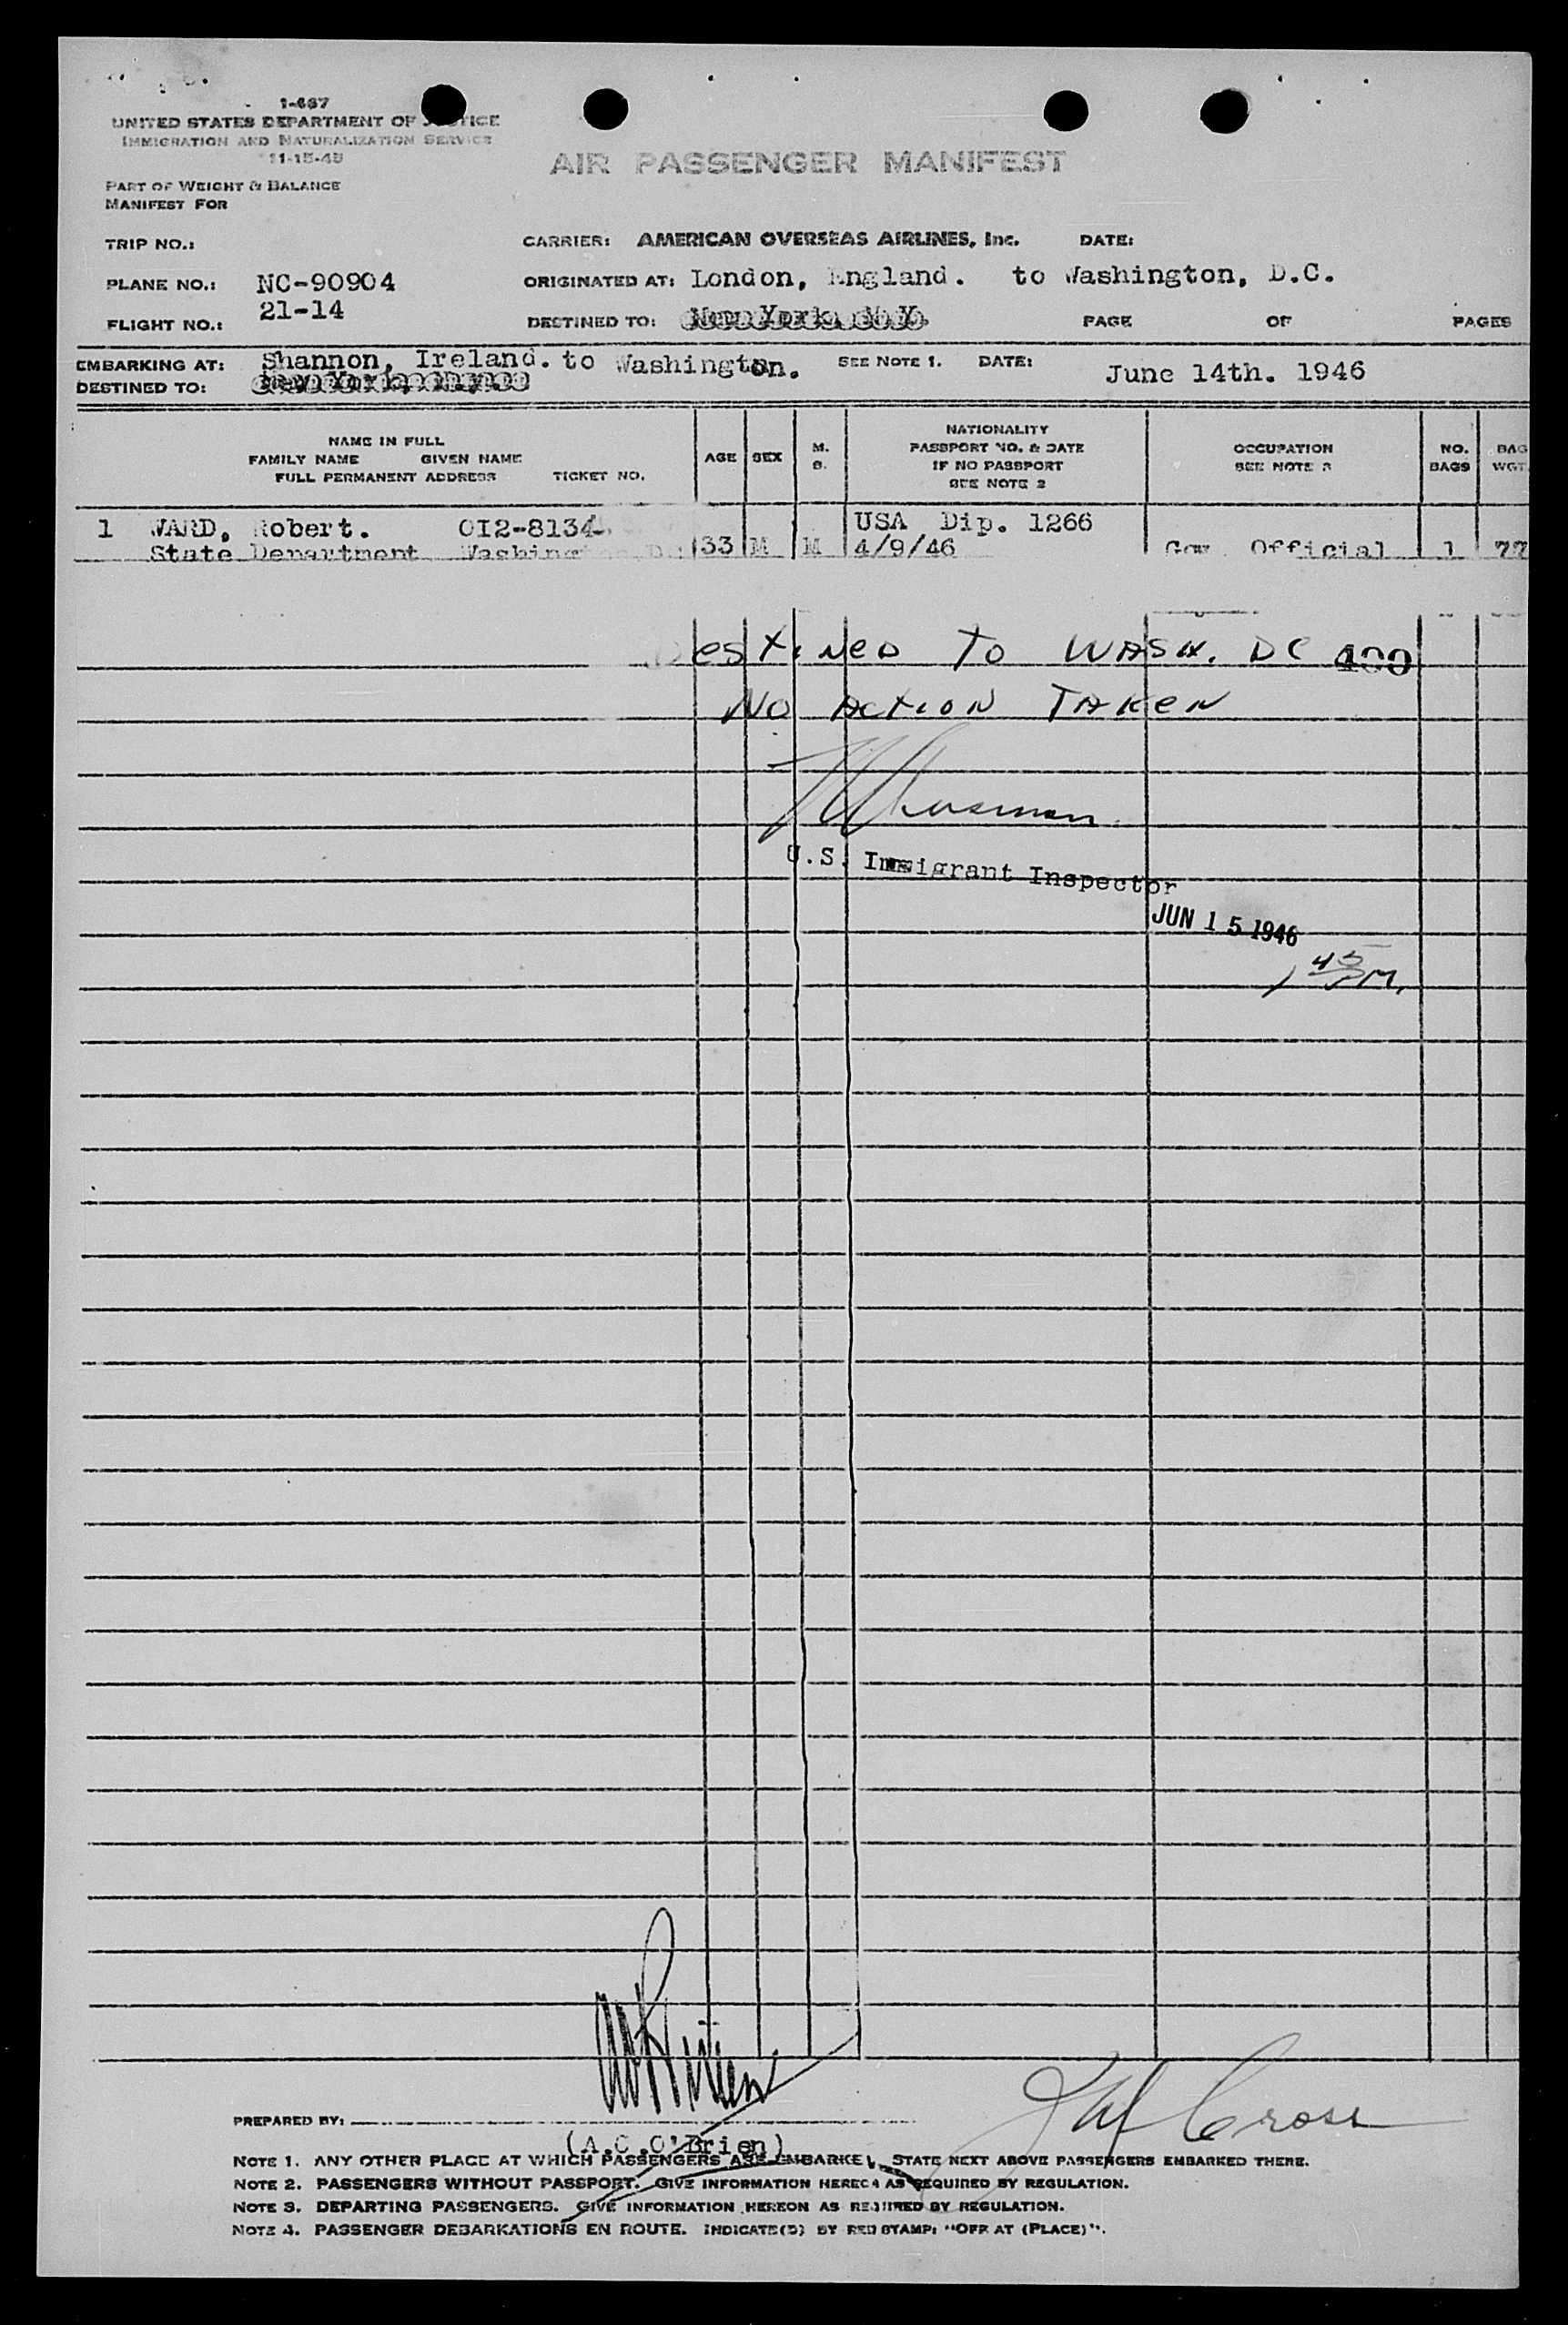 1-467
UNITED STATES DEPARTMENT OF JUSTICE
IMMIGRATION AND NATURALIZATION SERVICE
11-15-45
AIR PASSENGER MANIFEST
PART OF WEIGHT & BALANCE
MANIFEST FOR
TRIP NO.: CARRIER: AMERICAN OVERSEAS AIRLINES, Inc. DATE:
PLANE NO.: NC-90904 ORIGINATED AT: London, England. to Washington, D.C.
FLIGHT NO.: 21-14 DESTINED TO: New York, N.Y. PAGE OF PAGES
EMBARKING AT: Shannon, Ireland. to Washington. SEE NOTE 1. DATE: June 14th. 1946
DESTINED TO: New York,
NAME IN FULL
FAMILY NAME GIVEN NAME
FULL PERMANENT ADDRESS TICKET NO.
AGE SEX M. S.
NATIONALITY
PASSPORT NO. & DATE
IF NO PASSPORT
SEE NOTE 2
OCCUPATION
SEE NOTE 3
NO. BAGS
BAG WGT.
1 WARD, Robert. OI2-8134 USA Dip. 1266
State Department Washington D. 33 M M 4/9/46 Gov Official 1 77
DestineD To WASH. DC 400
No Action TAKeN
U.S. Immigrant Inspector
JUN 15 1946
1 45 PM.
PREPARED BY:
(A.C.O'Brien)
NOTE 1. ANY OTHER PLACE AT WHICH PASSENGERS ARE EMBARKED, STATE NEXT ABOVE PASSENGERS EMBARKED THERE.
NOTE 2. PASSENGERS WITHOUT PASSPORT. GIVE INFORMATION HEREON AS REQUIRED BY REGULATION.
NOTE 3. DEPARTING PASSENGERS. GIVE INFORMATION HEREON AS REQUIRED BY REGULATION.
NOTE 4. PASSENGER DEBARKATIONS EN ROUTE. INDICATE(D) BY RED STAMP: "OFF AT (PLACE)".